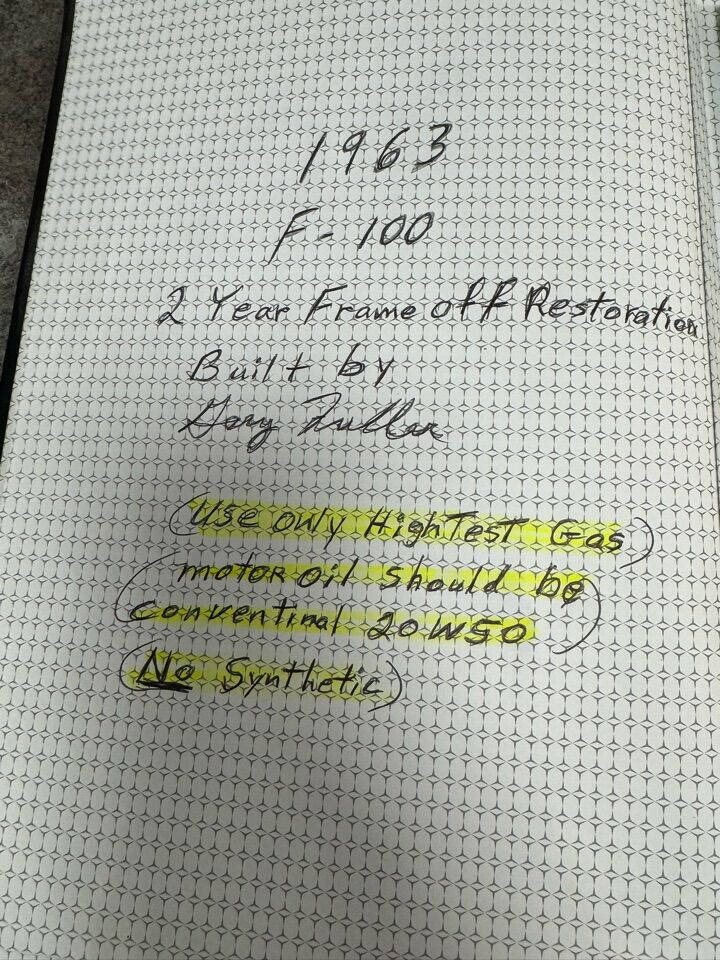 1963
F-100
2 Year Frame off Restoration
Built by
Gary Fuller
(Use only High Test Gas)
(motor oil should be
conventinal 20W50)
(No Synthetic)